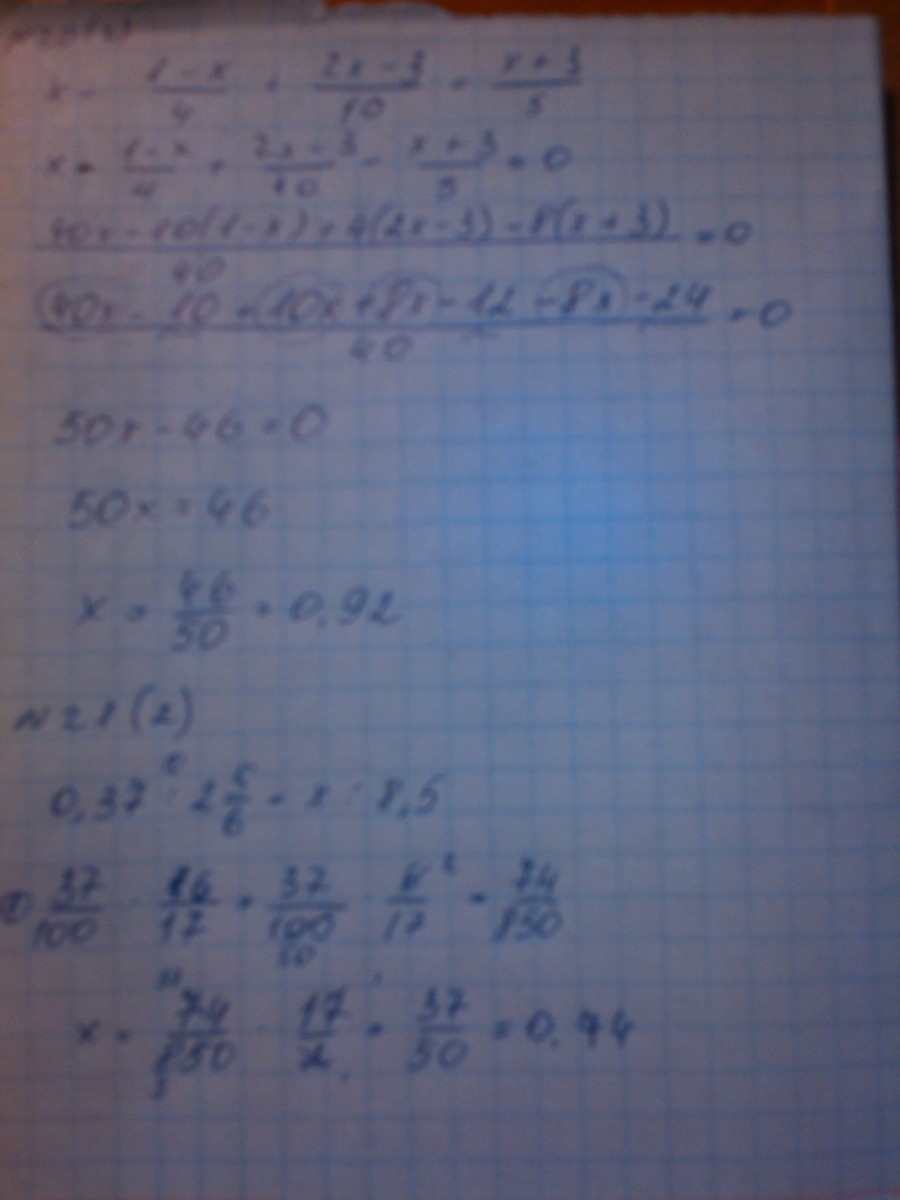 x - (1-x)/4 + (2x-3)/10 = (x+3)/5
x - (1-x)/4 + (2x-3)/10 - (x+3)/5 = 0
(40x-10(1-x)+4(2x-3)-8(x+3))/40 = 0
(40x-10+10x+8x-12-8x-24)/40 = 0
50x-46=0
50x=46
x = 46/50 = 0,92
N21(2)
0,37 : 2 5/6 = x : 8,5
① 37/100 : 16/17 = 37/100 50 · 6/17 = 74/850
x = 74/850 · 17/2 = 37/50 = 0,74